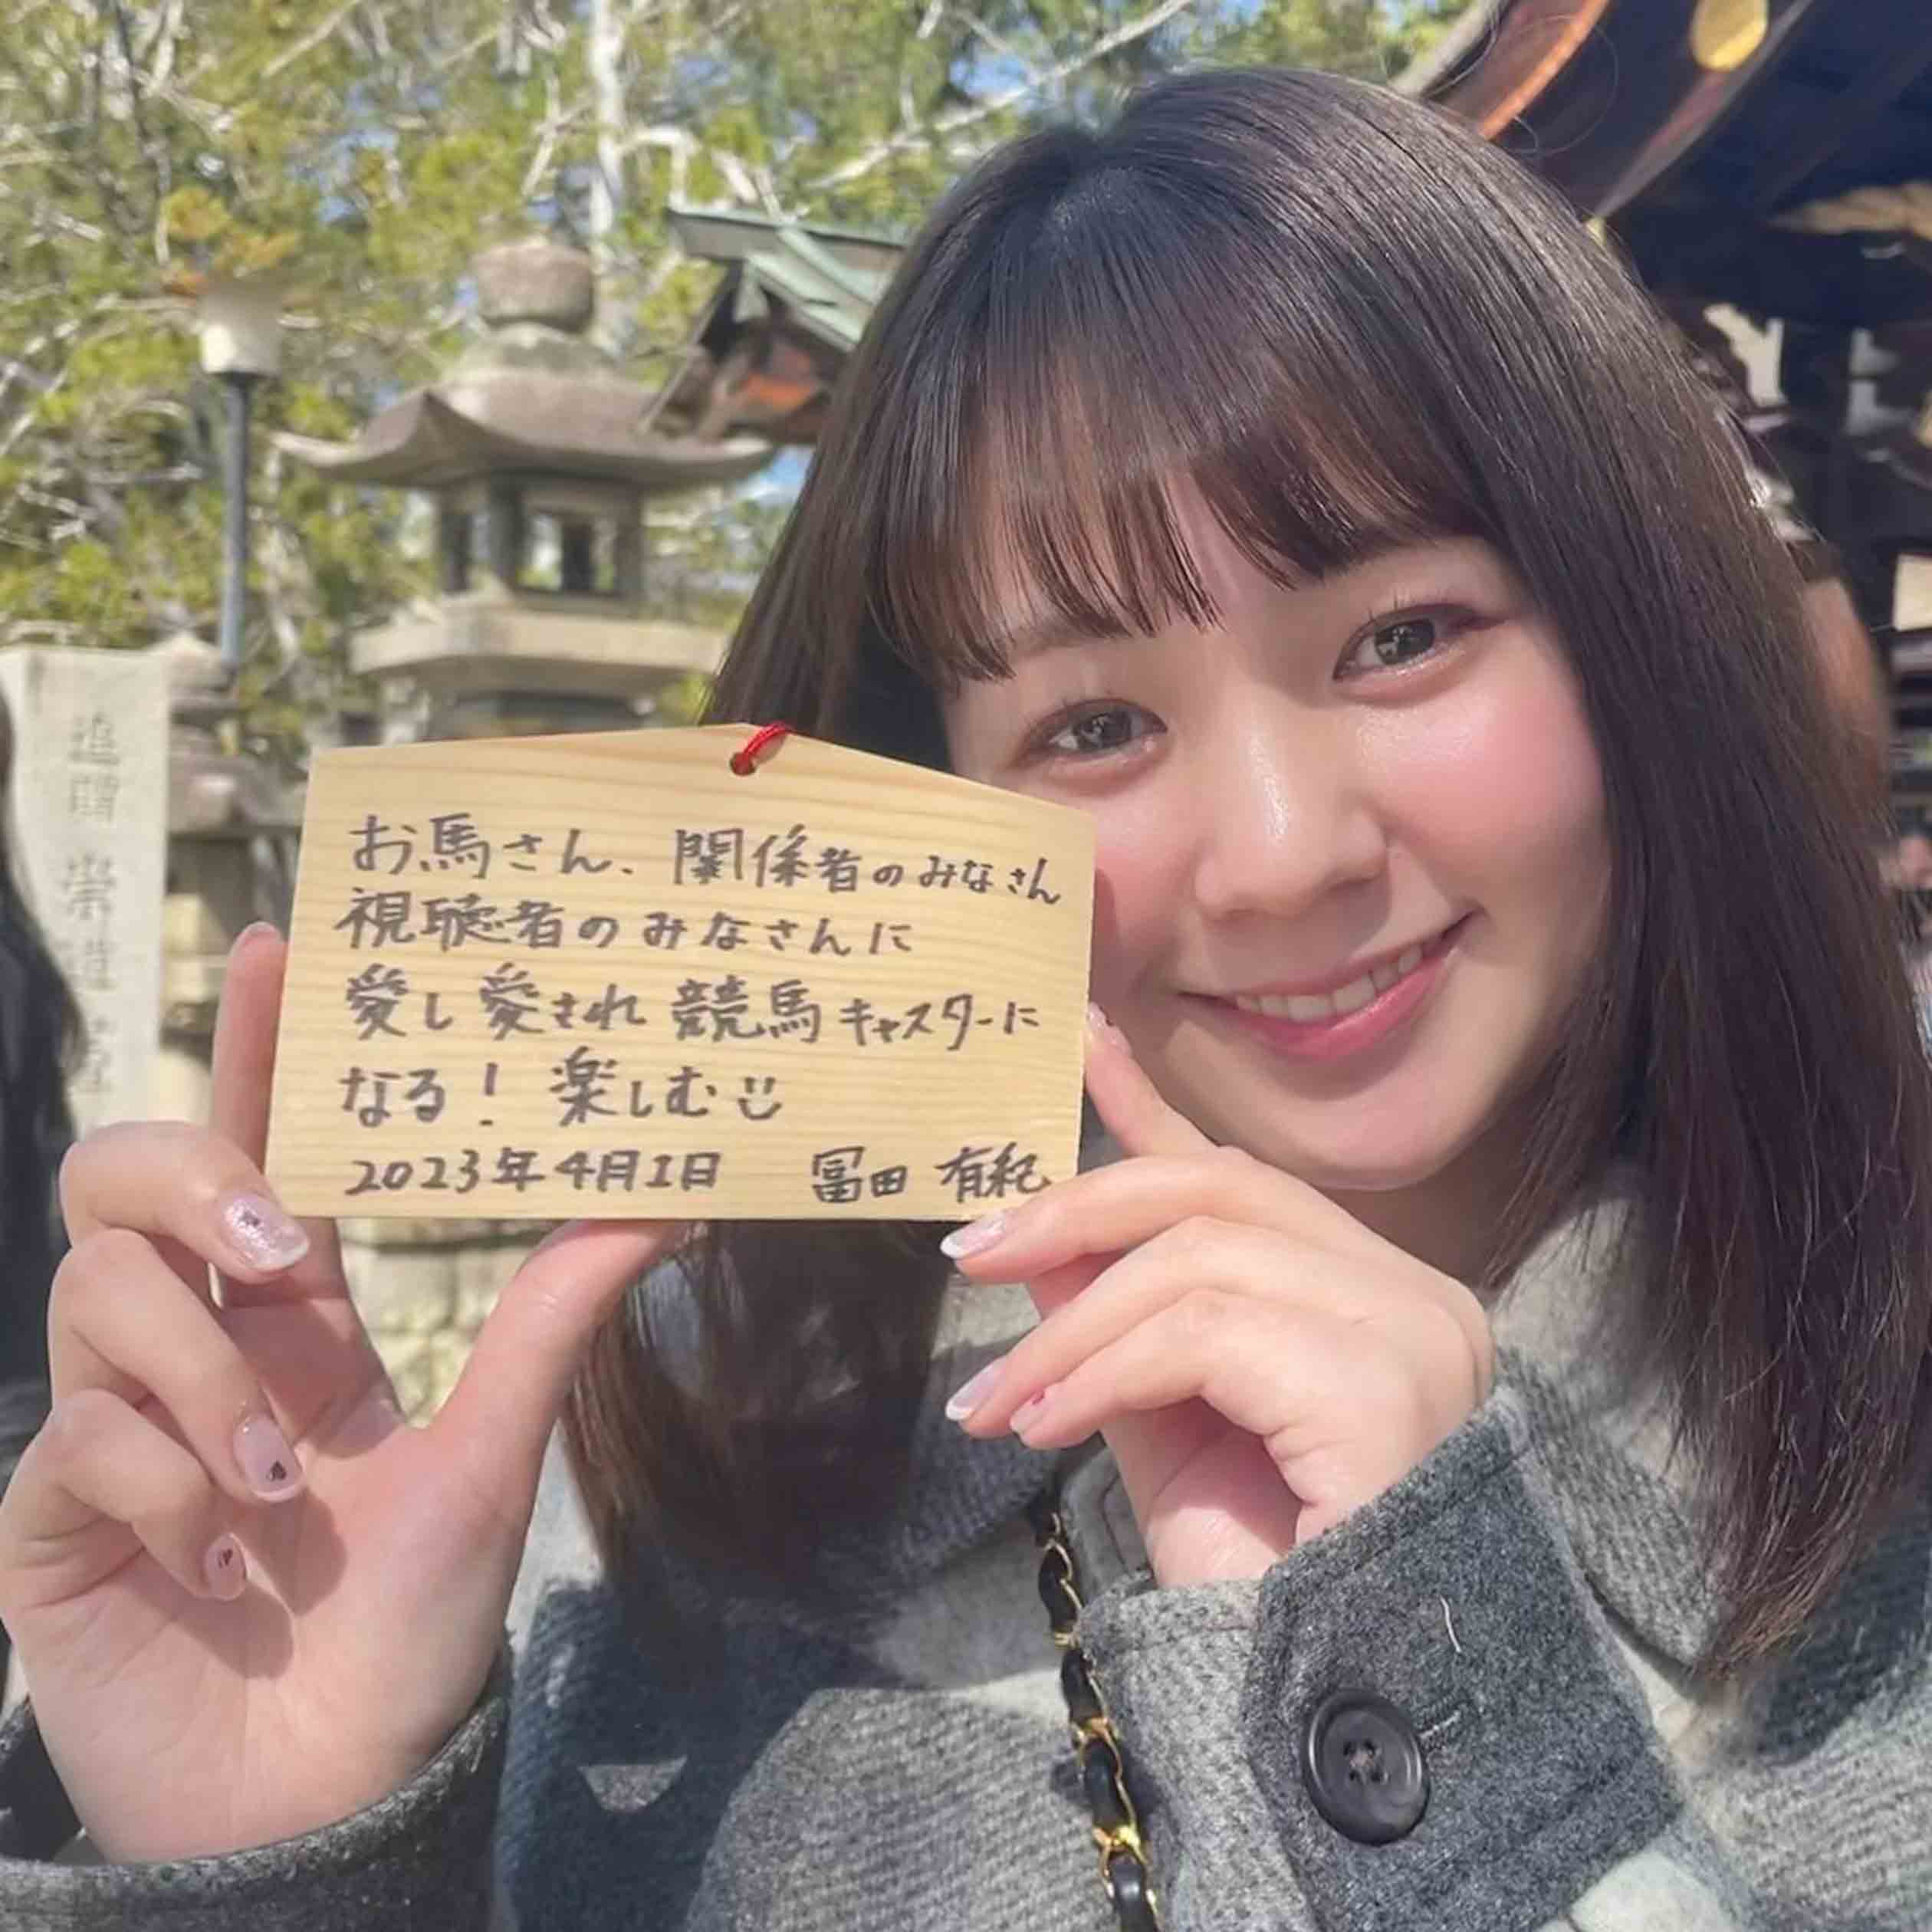 お馬さん、関係者のみなさん
視聴者のみなさんに
愛し愛され競馬キャスターに
なる！楽しむ
2023年4月1日 冨田 有紀
追贈